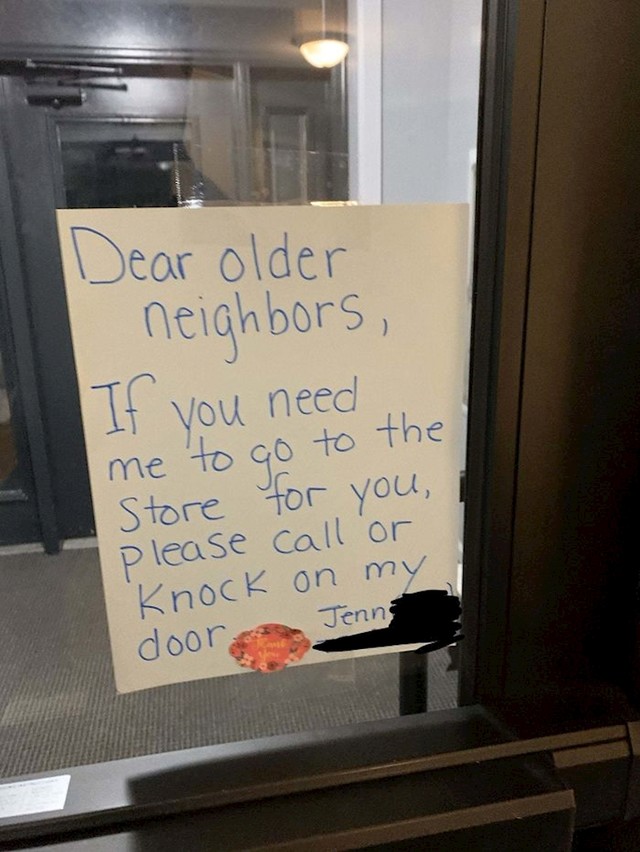 Dear older
neighbors,
If you need
me to go to the
Store for you,
please call or
Knock on my
door Jenn
Thank
You